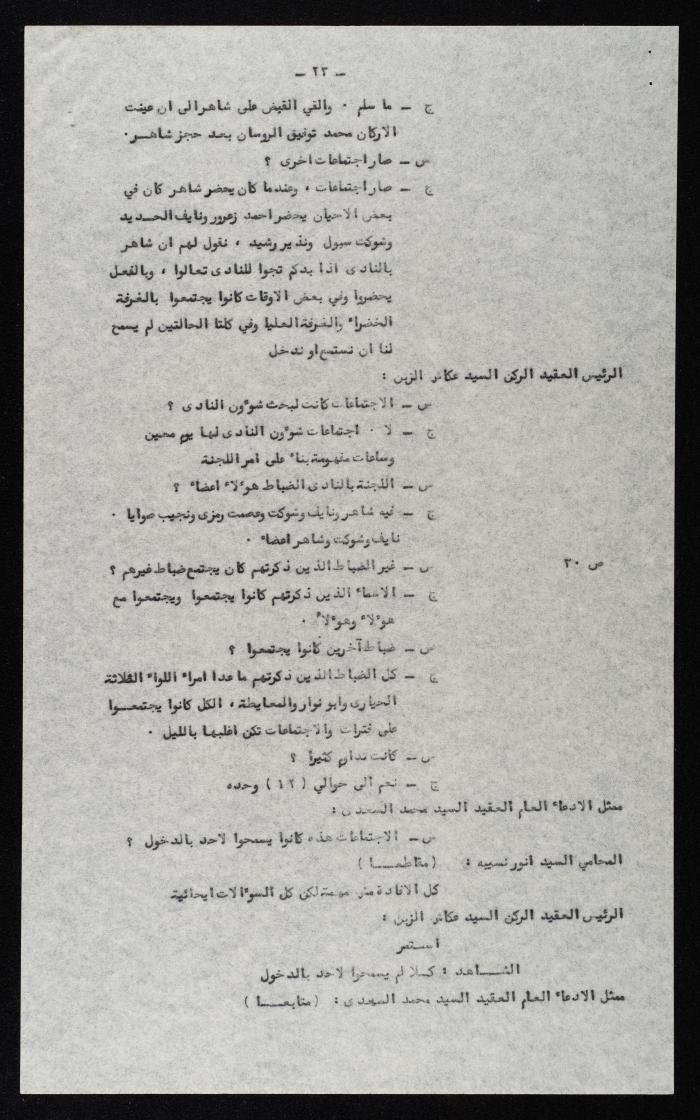 - ٢٣ -
ج - ما سلم . والقي القبض على شاهر الى ان عينت
الاركان محمد توفيق الروسان بعد حجز شاهــر.
س - صار اجتماعات اخرى ؟
ج - صار اجتماعات ، وعندما كان يحضر شاهر كان في
بعض الاحيان يحضر احمد زعرور ونايف الحــديد
وشوكت سبول ونذير رشيد ، نقول لهم ان شاهر
بالنادى اذا بدكم تجوا للنادى تعالوا ، وبالفعل
يحضروا وفي بعض الاوقات كانوا يجتمعوا بالغرفة
الخضراء والغرفة العليا وفي كلتا الحالتين لم يسمح
لنا ان نستمع او ندخل
الرئيس العقيد الركن السيد عكاش الزبن :
س - الاجتماعات كانت لبحث شوءون النادى ؟
ج - لا . اجتماعات شوءون النادى لها يوم معين
وساعات مفهومة بناء على امر اللجنة
س - اللجنة بالنادى الضباط هوءلاء اعضاء ؟
ج - فيه شاهر ونايف وشوكت وعصمت رمزى ونجيب صوايا .
نايف وشوكت وشاهر اعضاء .
ص ٣٠ س - غير الضباط الذين ذكرتهم كان يجتمع ضباط غيرهم ؟
ج - الاسماء الذين ذكرتهم كانوا يجتمعوا ويجتمعوا مع
هوءلاء وهوءلاء .
س - ضباط آخرين كانوا يجتمعوا ؟
ج - كل الضباط الذين ذكرتهم ما عدا امراء اللواء الثلاثة
الحيارى وابو نوار والمعايطة ، الكل كانوا يجتمعــوا
على فترات والاجتماعات تكن اغلبها بالليل .
س - كانت تداوم كثيرا ؟
ج - نعم الى حوالي ( ١٢ ) وحده
ممثل الادعاء العام العقيد السيد محمد السعدى :
س - الاجتماعات هذه كانوا يسمحوا لاحد بالدخول ؟
المحامي السيد انور نسيبه : ( مقاطعـــا )
كل الافادة لكن كل السوءالات ايحائية
الرئيس العقيد الركن السيد عكاش الزبن :
استمر
الشـــاهد : كــلا لم يسمحوا لاحد بالدخول
ممثل الادعاء العام العقيد السيد محمد السعدى : ( متابعـــا )